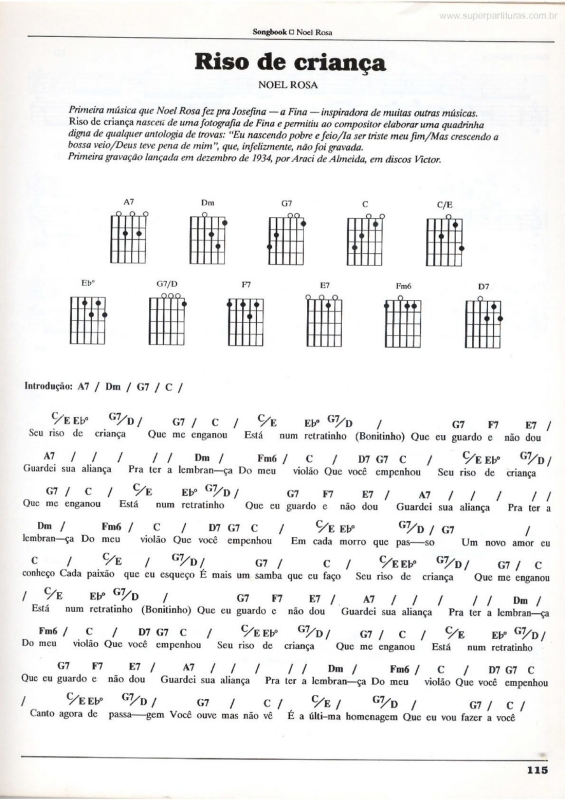 www.superpartituras.com.br
Songbook □ Noel Rosa
Riso de criança
NOEL ROSA
Primeira música que Noel Rosa fez pra Josefina — a Fina — inspiradora de muitas outras músicas.
Riso de criança nasceu de uma fotografia de Fina e permitiu ao compositor elaborar uma quadrinha
digna de qualquer antologia de trovas: "Eu nascendo pobre e feio/Ia ser triste meu fim/Mas crescendo a
bossa veio/Deus teve pena de mim", que, infelizmente, não foi gravada.
Primeira gravação lançada em dezembro de 1934, por Araci de Almeida, em discos Victor.
A7 Dm G7 C C/E
Eb° G7/D F7 E7 Fm6 D7
Introdução: A7 / Dm / G7 / C /
C/E Eb° G7/D / G7 / C / C/E Eb° G7/D / G7 F7 E7 /
Seu riso de criança Que me enganou Está num retratinho (Bonitinho) Que eu guardo e não dou
A7 / / / / / Dm / Fm6 / C / D7 G7 C / C/E Eb° G7/D /
Guardei sua aliança Pra ter a lembran—ça Do meu violão Que você empenhou Seu riso de criança
G7 / C / C/E Eb° G7/D / G7 F7 E7 / A7 / / / / /
Que me enganou Está num retratinho Que eu guardo e não dou Guardei sua aliança Pra ter a
Dm / Fm6 / C / D7 G7 C / C/E Eb° G7/D / G7 /
lembran—ça Do meu violão Que você empenhou Em cada morro que pas—so Um novo amor eu
C / C/E / G7/D / G7 / C / C/E Eb° G7/D / G7 / C
conheço Cada paixão que eu esqueço É mais um samba que eu faço Seu riso de criança Que me enganou
/ C/E Eb° G7/D / G7 F7 E7 / A7 / / / / / Dm /
Está num retratinho (Bonitinho) Que eu guardo e não dou Guardei sua aliança Pra ter a lembran—ça
Fm6 / C / D7 G7 C / C/E Eb° G7/D / G7 / C / C/E Eb° G7/D /
Do meu violão Que você empenhou Seu riso de criança Que me enganou Está num retratinho
G7 F7 E7 / A7 / / / / / Dm / Fm6 / C / D7 G7 C
Que eu guardo e não dou Guardei sua aliança Pra ter a lembran—ça Do meu violão Que você empenhou
/ C/E Eb° G7/D / G7 / C / C/E / G7/D / G7 / C /
Canto agora de passa—gem Você ouve mas não vê É a últi-ma homenagem Que eu vou fazer a você
115